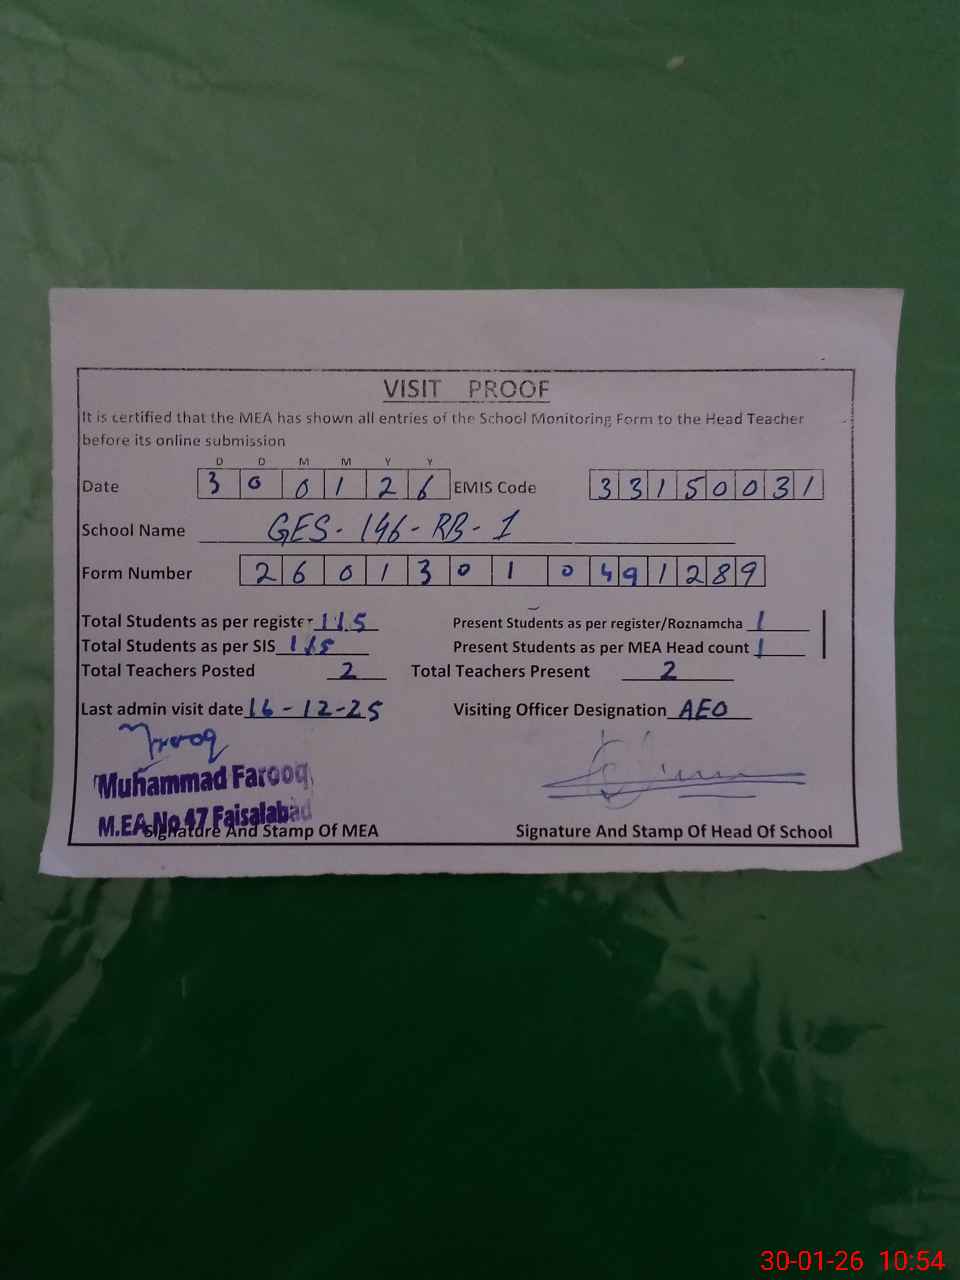 VISIT PROOF
It is certified that the MEA has shown all entries of the School Monitoring Form to the Head Teacher
before its online submission
D D M M Y Y
Date 3 0 0 1 2 6 EMIS Code 3 3 1 5 0 0 3 1
School Name GES-146-RB-1
Form Number 2 6 0 1 3 0 1 0 4 9 1 2 8 9
Total Students as per register 115 Present Students as per register/Roznamcha 1
Total Students as per SIS 115 Present Students as per MEA Head count 1
Total Teachers Posted 2 Total Teachers Present 2
Last admin visit date 16-12-25 Visiting Officer Designation AEO
Farooq
Muhammad Farooq
M.EA No.47 Faisalabad
Signature And Stamp Of MEA Signature And Stamp Of Head Of School
30-01-26 10:54